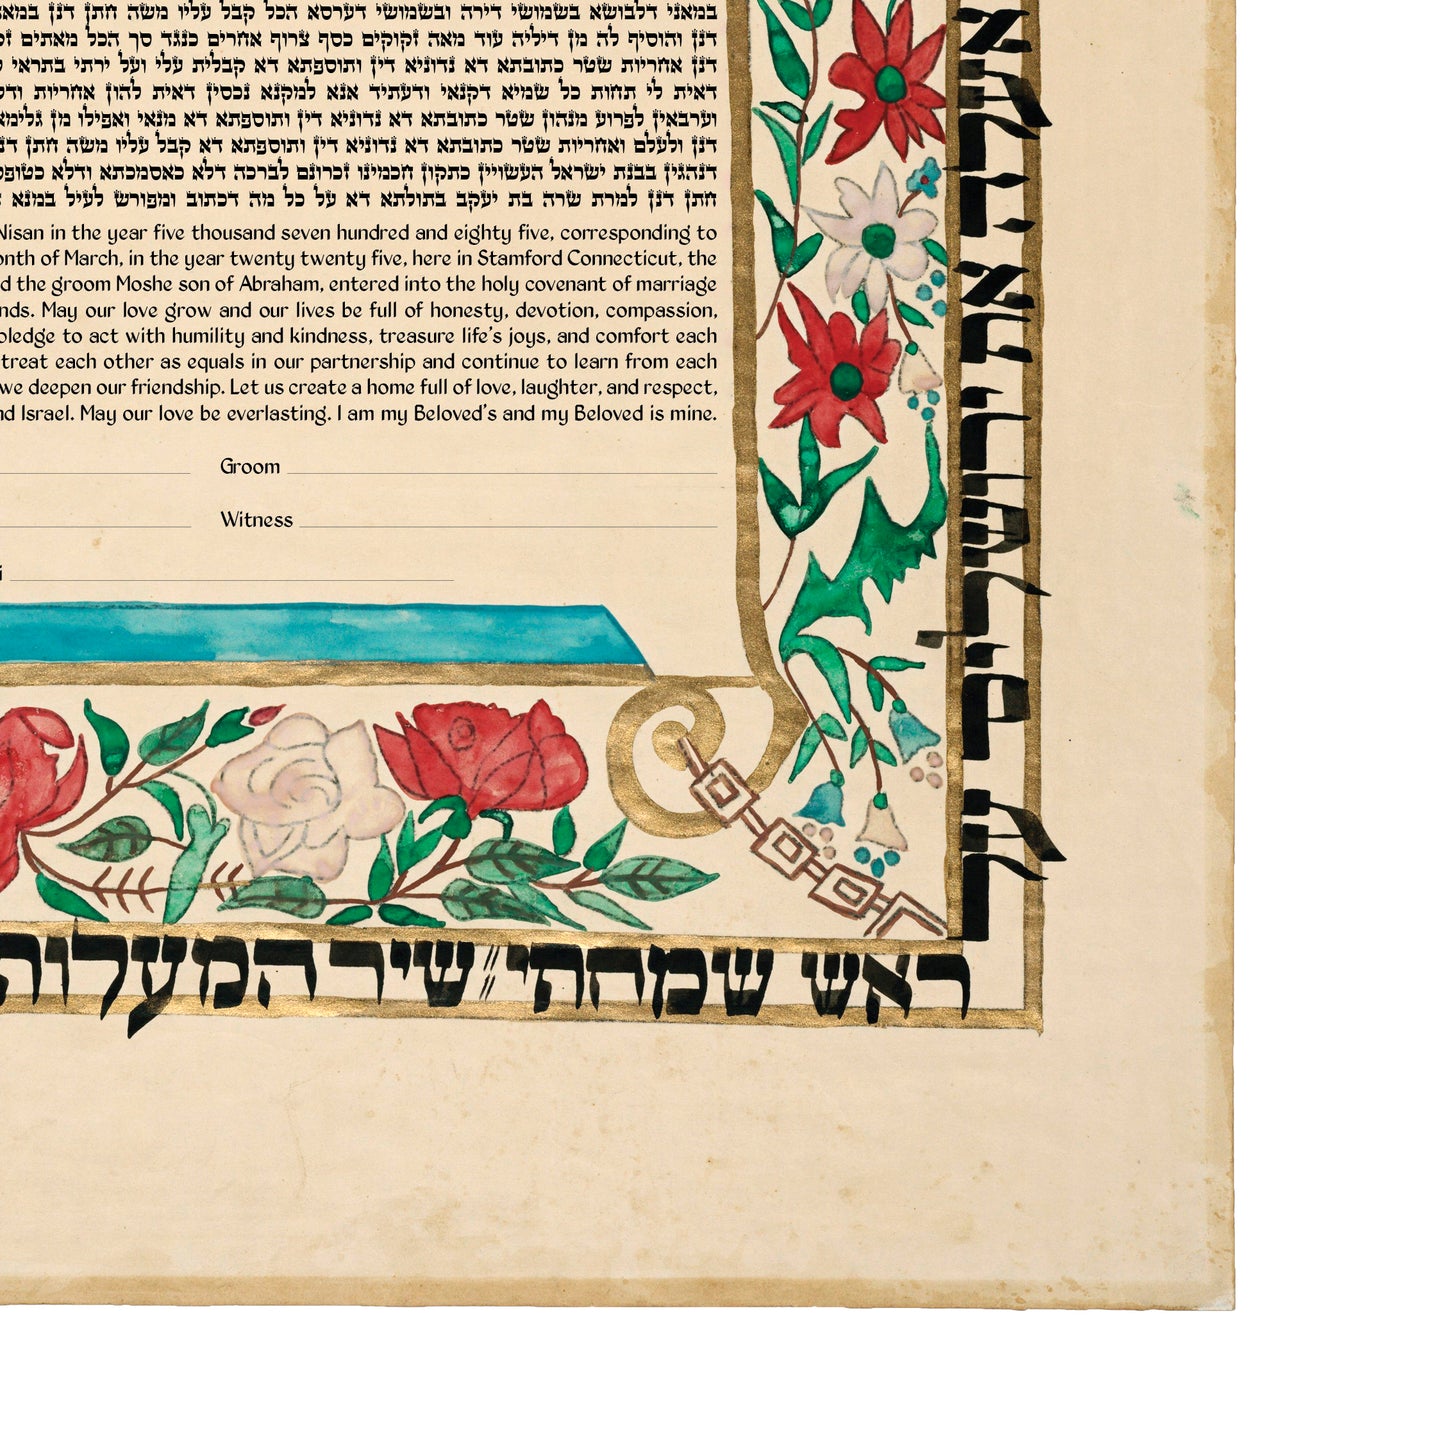 במאני דלבושא בשמושי דירה ובשמושי דערסא הכל קבל עליו משה חתן דנן
דנן והוסיף לה מן דיליה עוד מאה זקוקים כסף צרוף אחרים כנגד סך הכל מאתים
דנן אחריות שטר כתובתא דא נדוניא דין ותוספתא דא קבלית עלי ועל ירתי בתראי
דאית לי תחות כל שמיא דקנאי ודעתיד אנא למקנא נכסין דאית להון אחריות
וערבאין לפרוע מנהון שטר כתובתא דא נדוניא דין ותוספתא דא מנאי ואפילו מן
דנן ולעלם ואחריות שטר כתובתא דא נדוניא דין ותוספתא דא קבל עליו משה חתן
דנהגין בבנת ישראל העשויין כתקון חכמינו זכרונם לברכה דלא כאסמכתא ודלא
חתן דנן למרת שרה בת יעקב בתולתא דא על כל מה דכתוב ומפורש לעיל במנא
Nisan in the year five thousand seven hundred and eighty five, corresponding to
onth of March, in the year twenty twenty five, here in Stamford Connecticut, the
d the groom Moshe son of Abraham, entered into the holy covenant of marriage
nds. May our love grow and our lives be full of honesty, devotion, compassion,
pledge to act with humility and kindness, treasure life's joys, and comfort each
treat each other as equals in our partnership and continue to learn from each
we deepen our friendship. Let us create a home full of love, laughter, and respect,
nd Israel. May our love be everlasting. I am my Beloved's and my Beloved is mine.
Groom
Witness
ראש שמחתי שיר המעלות